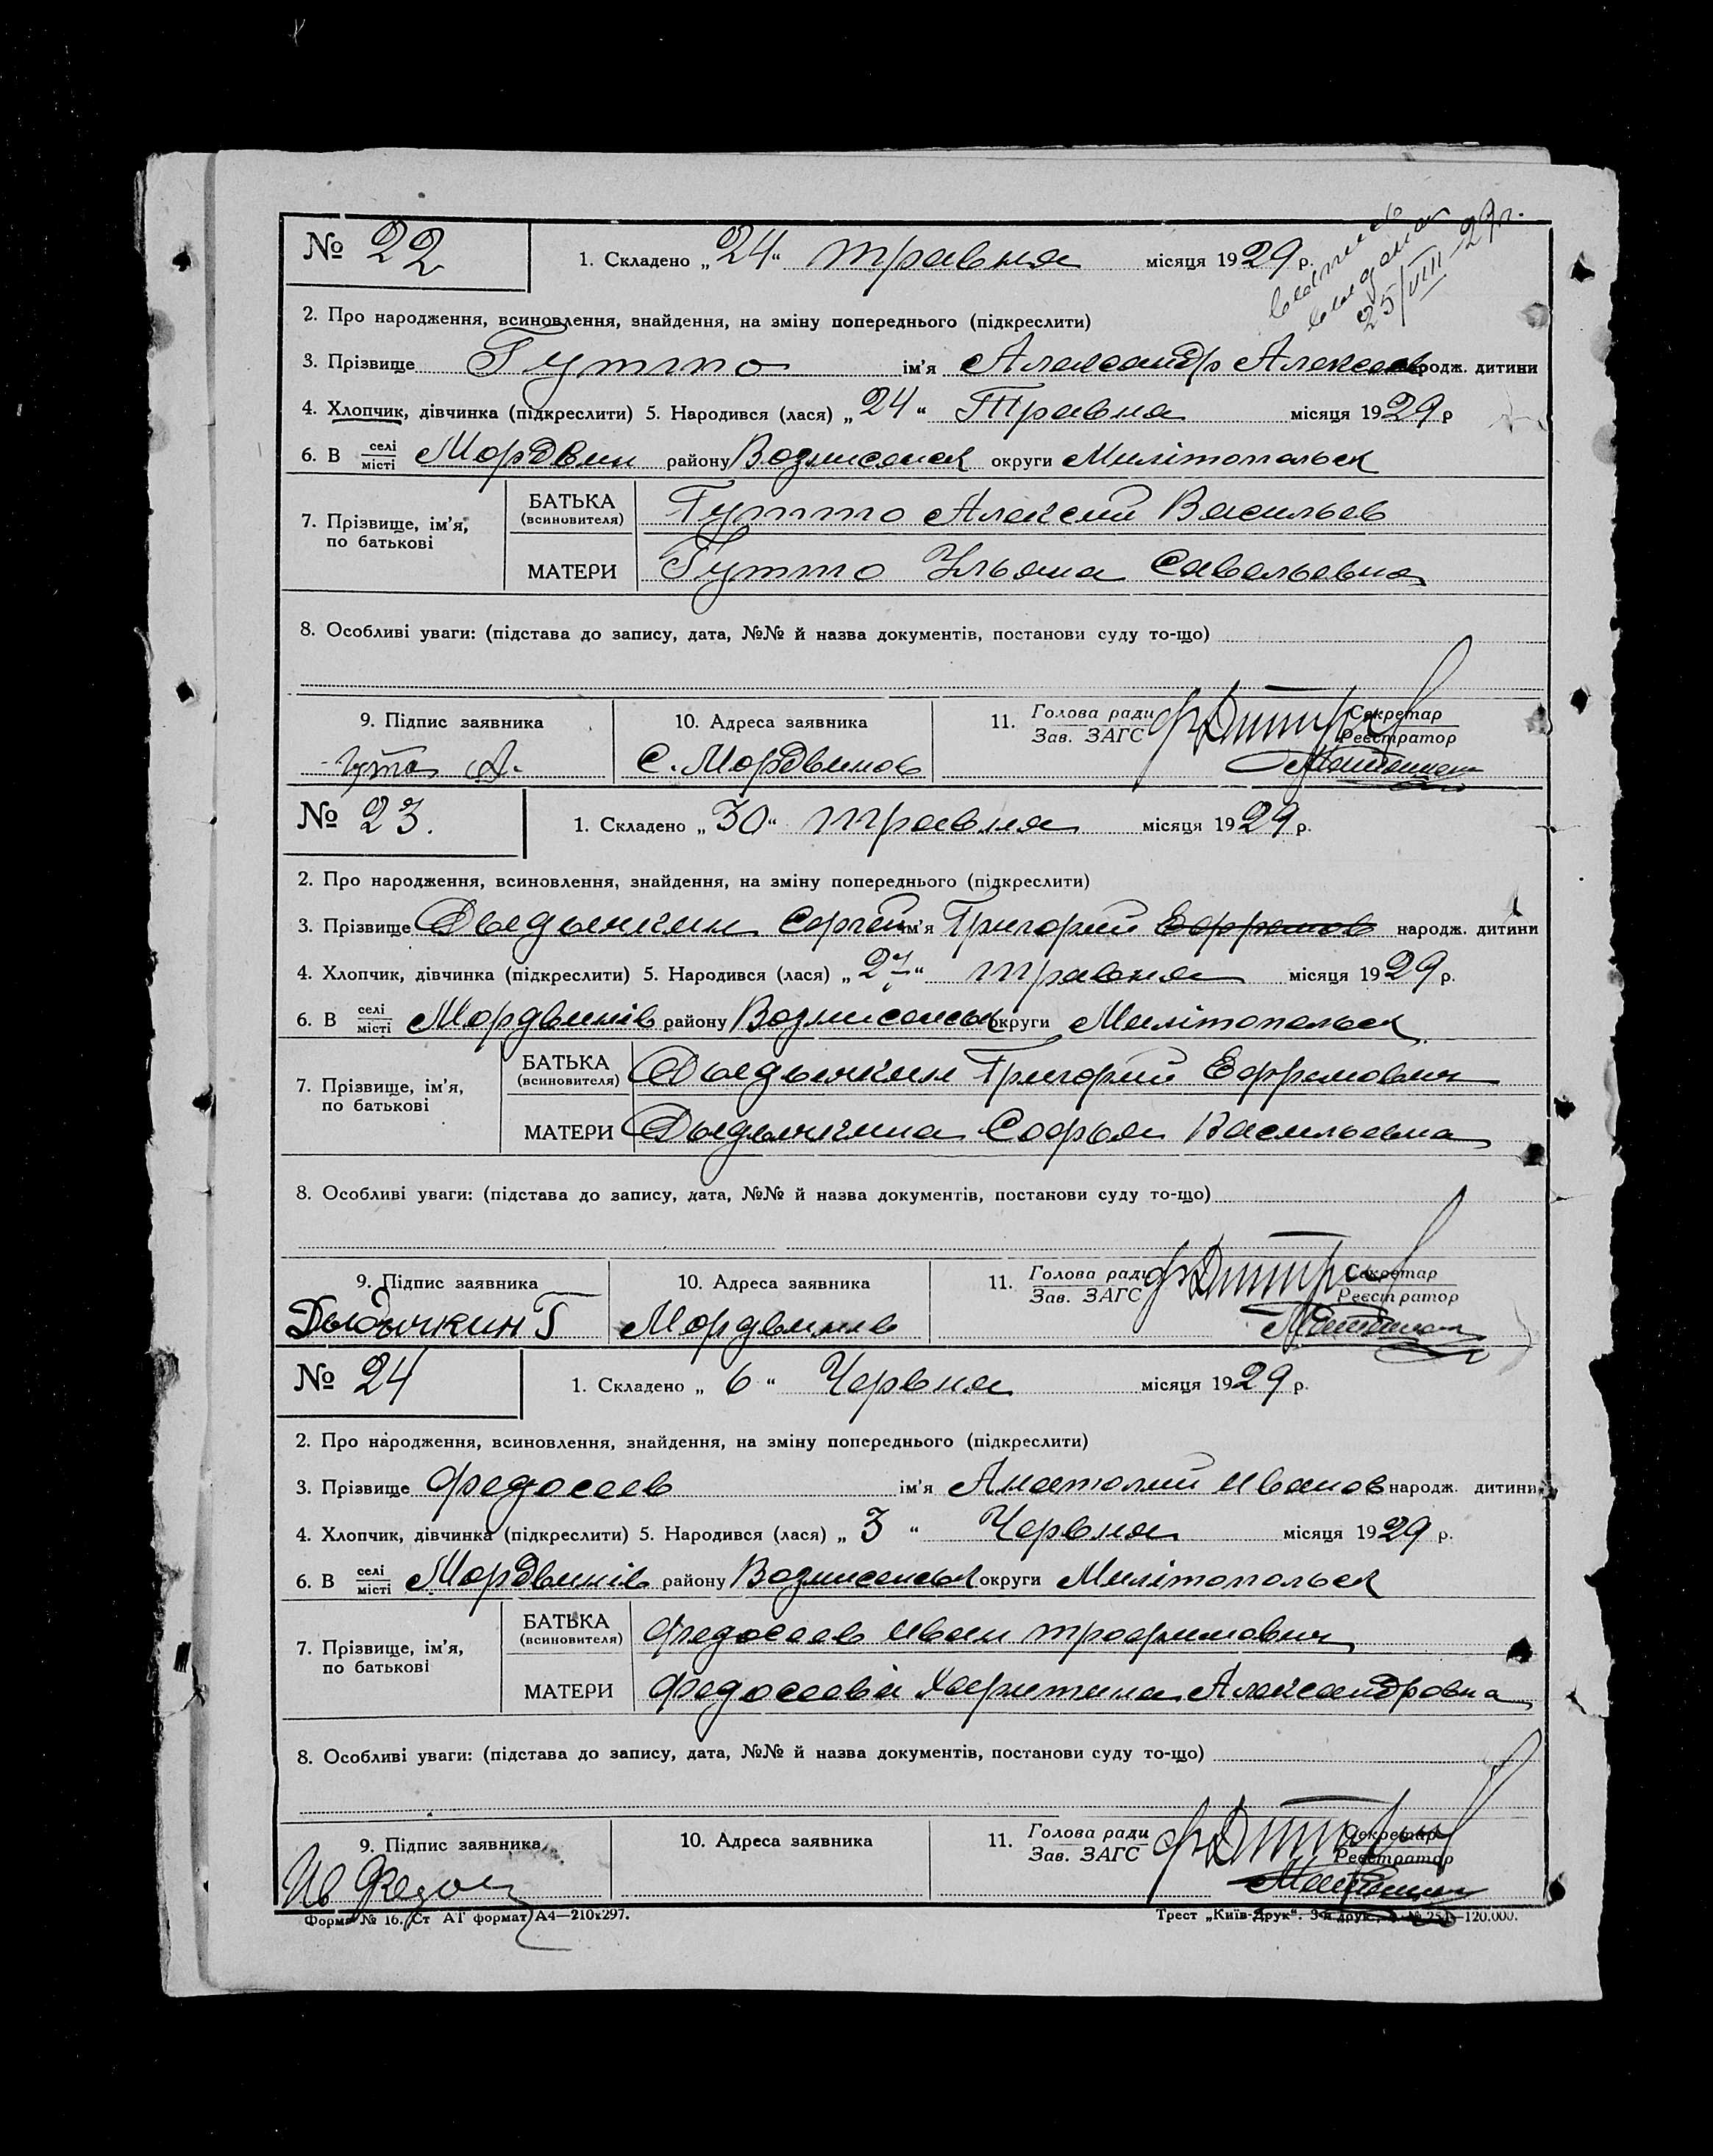 № 22 1. Складено „24“ травня місяця 1929 р.
25/VIII 29 г.
2. Про народження, всиновлення, знайдення, на зміну попереднього (підкреслити)
3. Прізвище Гутто ім'я Александр Алексеев народж. дитини
4. Хлопчик, дівчинка (підкреслити) 5. Народився (лася) „24“ Травня місяця 1929 р
6. В селі/місті Мордвин району Вознисенск округи Милітопольск
7. Прізвище, ім'я, по батькові
БАТЬКА (всиновителя) Гутто Алексей Васильев
МАТЕРИ Гутто Ульяна Савельевна
8. Особливі уваги: (підстава до запису, дата, №№ й назва документів, постанови суду то-що)
9. Підпис заявника 10. Адреса заявника 11. Голова ради Секретар
Зав. ЗАГС Реєстратор
Гутто А. С. Мордвинов
№ 23. 1. Складено „30“ травня місяця 1929 р.
2. Про народження, всиновлення, знайдення, на зміну попереднього (підкреслити)
3. Прізвище Дыдычкин Сергей ім'я Григорий Ефремов народж. дитини
4. Хлопчик, дівчинка (підкреслити) 5. Народився (лася) „27“ травня місяця 1929 р.
6. В селі/місті Мордвинів району Вознисенськ округи Милітопольск
7. Прізвище, ім'я, по батькові
БАТЬКА (всиновителя) Дыдычкин Григорий Ефремович
МАТЕРИ Дыдычкина Софья Васильевна
8. Особливі уваги: (підстава до запису, дата, №№ й назва документів, постанови суду то-що)
9. Підпис заявника 10. Адреса заявника 11. Голова ради Секретар
Зав. ЗАГС Реєстратор
Дыдычкин Г Мордвинів
№ 24 1. Складено „6“ Червня місяця 1929 р.
2. Про народження, всиновлення, знайдення, на зміну попереднього (підкреслити)
3. Прізвище Федосеев ім'я Анатолий Иванов народж. дитини
4. Хлопчик, дівчинка (підкреслити) 5. Народився (лася) „3“ Червня місяця 1929 р.
6. В селі/місті Мордвинів району Вознисенськ округи Милітопольск
7. Прізвище, ім'я, по батькові
БАТЬКА (всиновителя) Федосеев Иван Трофимович
МАТЕРИ Федосеева Харитина Александровна
8. Особливі уваги: (підстава до запису, дата, №№ й назва документів, постанови суду то-що)
9. Підпис заявника 10. Адреса заявника 11. Голова ради Секретар
Зав. ЗАГС Реєстратор
Ив Федос
Форма № 16. Ст АГ формат А4—210x297. Трест „Київ-Друк“. 3-я друк. 120.000.